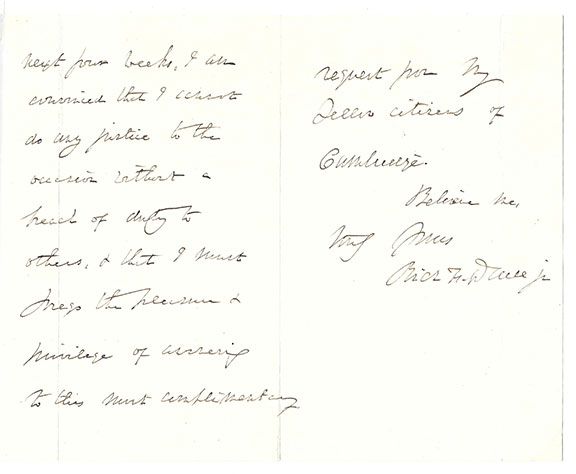 next four weeks, I am
convinced that I cannot
do any justice to the
occasion without a
breach of duty to
others, & that I must
forego the pleasure &
privilege of acceding
to this most complimentary
request from my
fellow citizens of
Cambridge.
Believe me,
Very
Rich. H. Dana jr